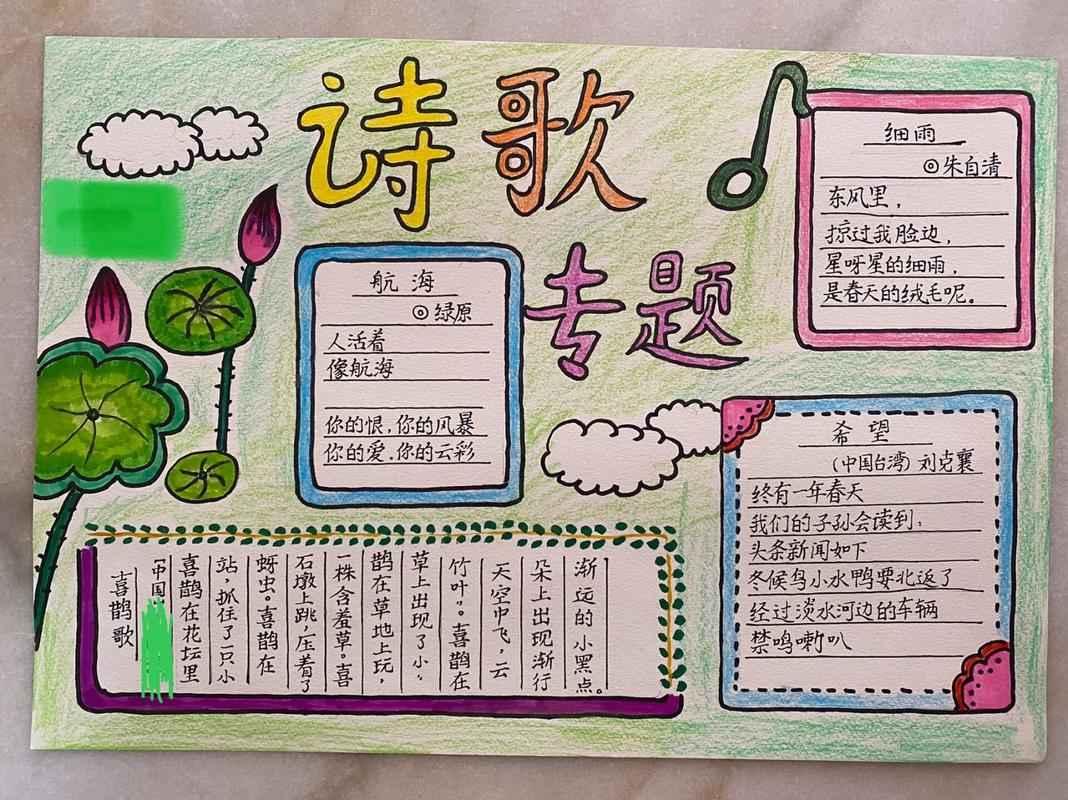 诗歌
专题
航海
◎绿原
人活着
像航海
你的恨,你的风暴
你的爱.你的云彩
细雨
◎朱自清
东风里,
掠过我脸边,
星呀星的细雨,
是春天的绒毛呢。
希望
(中国台湾)刘克襄
终有一年春天
我们的子孙会读到:
头条新闻如下
冬候鸟小水鸭要北返了
经过淡水河边的车辆
禁鸣喇叭
喜鹊歌
中国
喜鹊在花坛里
站,抓住了一只小
蚜虫。喜鹊在
石墩上跳,压着了
一株含羞草。喜
鹊在草地上玩,
草上出现了小“
竹叶”。喜鹊在
天空中飞,云
朵上出现渐行
渐远的小黑点。